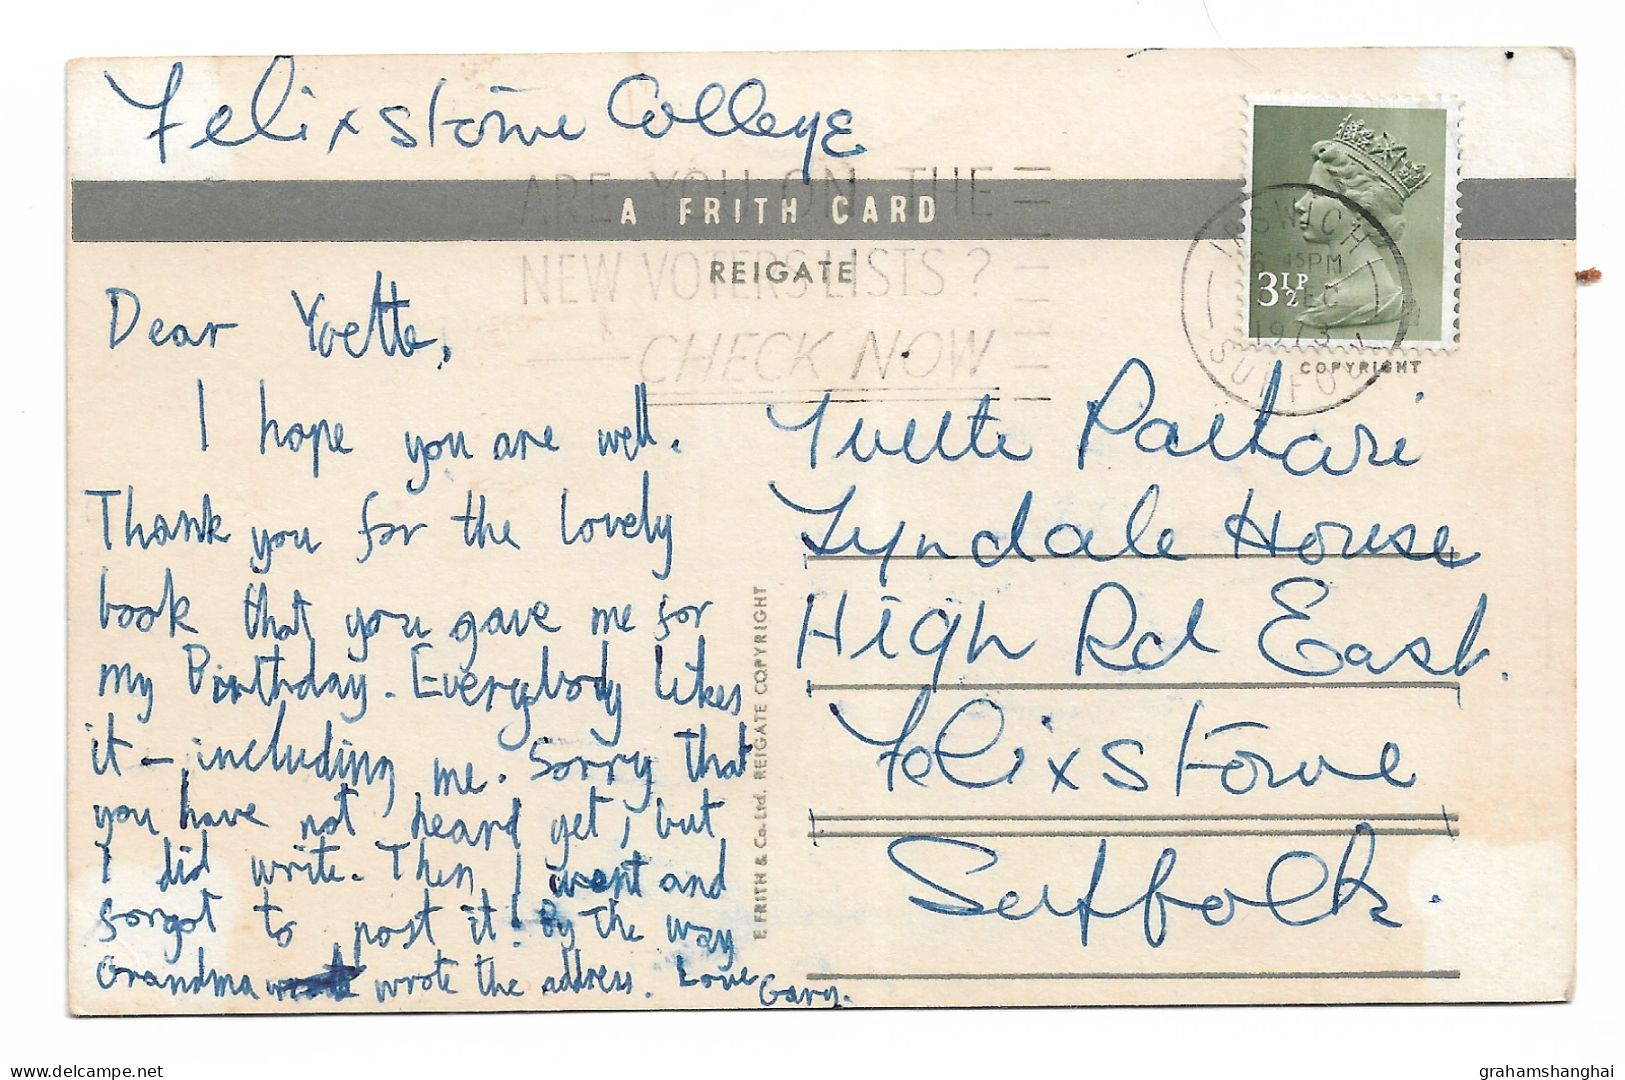 Felixstowe College
ARE YOU ON THE
A FRITH CARD
NEW VOTERS LISTS ?
REIGATE
CHECK NOW
3½P
IPSWICH
45PM
1973
SUFFOLK
COPYRIGHT
Dear Yvette,
I hope you are well.
Thank you for the lovely
book that you gave me for
my Birthday. Everybody likes
it – including me. Sorry that
you have not heard yet, but
I did write. Then I went and
forgot to post it! By the way
Grandma wrote the address. Love Gary.
E. FRITH & Co. Ltd. REIGATE COPYRIGHT
Yvette
Lyndale House
High Rd East.
Felixstowe
Suffolk.
delcampe.net
grahamshanghai